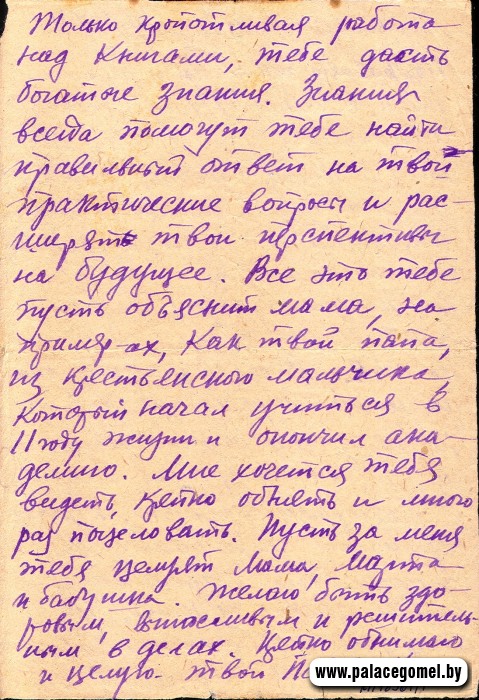 Только кропотливая работа
над Книгами, тебе дасть
богатые знания. Знания
всегда помогут тебе найти
правильный ответ на твои
практические вопросы и рас-
ширять твои перспективы
на будущее. Все это тебе
пусть объяснит мама, на
пример-ах, Как твой папа,
из крестьянского мальчика,
который начал учиться в
11 году жизни и окончил ака-
демию. Мне хочется тебя
видеть, крепко обнять и много
раз поцеловать. Пусть за меня
тебя целуят Мама, Марта
и бабушка. Желаю быть здо-
ровым, и решитель-
ным в делах. Крепко обнимаю
и целую твой
www.palacegomel.by